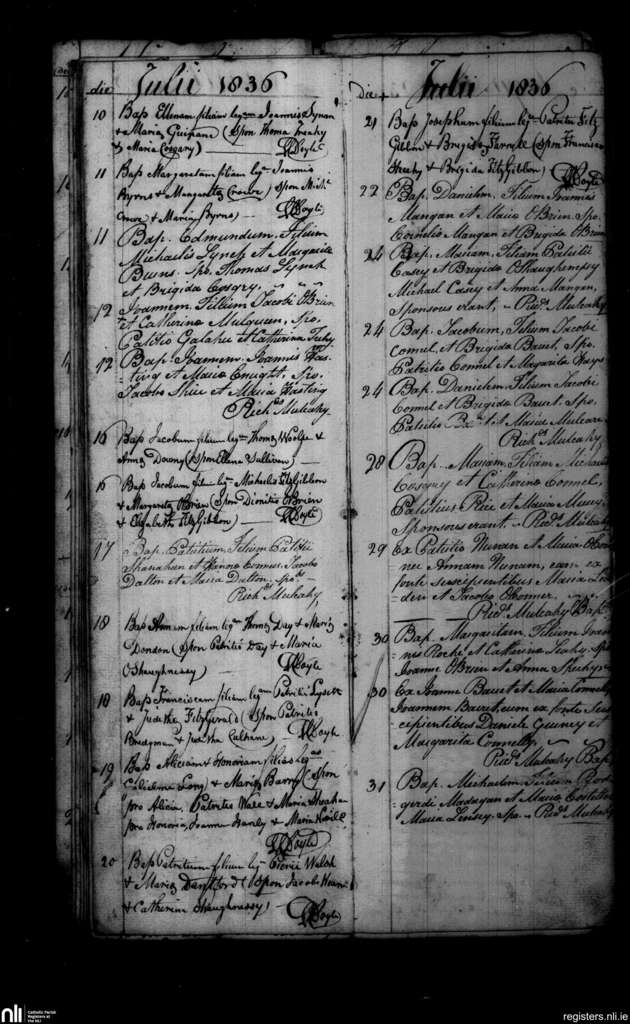 die Julii 1836
10 Bap Ellenam filiam legm Joannis
& Maria Guinane (Spon Thoma
& Maria
Doyle
11 Bap Margaretam filiam legm Joannis
Byrns & Margaretta Crowe) Spon Michl
Crowe & Maria Byrns)
Doyle
11 Bap. Edmundum. Filium
Michaelis Lynch et Margarita
Burns. Spo. Thomas Lynch
et Brigida Cosgry.
12 Joannem. Fillium Jacobi OBrien
et Catherina Mulqueen, Spo.
et Catherina
12 Bap. Joannis Has
ting et Maria Enright, Spo.
Jacobo Shee et Maria Hasting
Richd Mulcahy
16 Bap Jacobum filium legm Thomæ Woolfe &
Anna Downy (Spon Ellena Sullivan)
16 Bap Jacobum filium leg Michaelis FitzGibbon
& Margareta OBrien (Spon Dionitio OBrien
& Elizabeth FitzGibbon)
Doyle
17 Bap. Patritium Filium Patritii
Shanahan et Hanora Connors Jacobo
Dalton et Maria Dalton, Spo
Richd Mulcahy
18 Bap Annam filiam legm Thomæ Day & Mariæ
Dondon (Spon Patritio Day & Maria
OShaughnessy)
Doyle
18 Bap Franciscam filiam legm Patritii Lysett
& Juditha Fitzgerald (Spon Patritio
Bridgman & Juditha Culhane)
Doyle
19 Bap Aliciam & Honoriam filias legas
Long & Maria Barry (Spon
pro Alicia, Patritio Wall & Maria
pro Honoria, Joanne Hanly & Maria
Doyle
20 Bap Patritium filium leg Pierce Walsh
& Maria (Spon Jacobo
& Catherina Shaughnessy)
Doyle
die Julii 1836
21 Bap Josephum filium leg Patritii Fitz
Gibbon & Brigida Farrell (Spon Francisco
& Brigida FitzGibbon)
Doyle
22 Bap. Danielem. Filium Joannis
Mangan et Maria OBrien Spo.
Cornelio Mangan et Brigida OBrien
24 Bap. Mariam, Filiam Patritii
Casey et Brigida OShaughenssy
Michael Casey et Anna Mangan,
Sponsores erant, Richd Mulcahy
24 Bap. Jacobum, Filium Jacobi
Connel, et Brigida Baret, Spo.
Patritio Connel et Margarita Hays
24 Bap. Danielem Filium Jacobi
Connel et Brigida Baret. Spo.
Patritio et Maria
Richd Mulcahy
28 Bap. Mariam, Filiam Michaelis
Cosgry et Catherina Connel,
Patritius Rice et Maria
Sponsores erant. Richd Mulcahy
29 Ex Patritio Nunan et Maria
Annam Nunam, eam ex
fonte suscipientibus Maria
et Jacobo OConnor.
Richd Mulcahy Bap
30 Bap. Margaritam. Filiam Joan
nis Roche et Catherina Leahy. Spo
Joanne OBrien et Anna
30 Ex Joanne Baret et Maria Connelly
Joannem Baret, eum ex fonte Sus
cipientibus Daniele Guiney et
Margarita Connelly
Richd Mulcahy Bap
31 Bap. Michaelem, Filium
Madagan et Maria
Maria Linsey. Spo. Richd Mulcahy
nli
Catholic Parish
Registers at
the NLI
registers.nli.ie